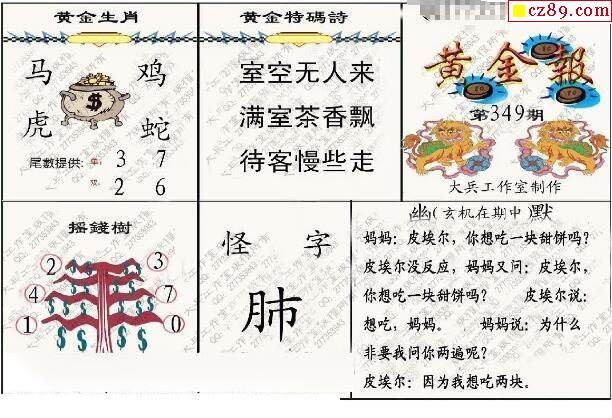 cz89.com
黄金生肖
马 鸡
虎 蛇
$
尾數提供: 单: 3 7
双: 2 6
黄金特碼詩
室空无人来
满室茶香飘
待客慢些走
黄金報
第349期
大兵工作室制作
摇錢樹
2 3
4 7
1 0
$ $ $ $ $ $
怪 字
肺
幽(玄机在期中)默
妈妈：皮埃尔，你想吃一块甜饼吗？
皮埃尔没反应，妈妈又问：皮埃尔，
你想吃一块甜饼吗？ 皮埃尔说：
想吃，妈妈。 妈妈说：为什么
非要我问你两遍呢？
皮埃尔：因为我想吃两块。